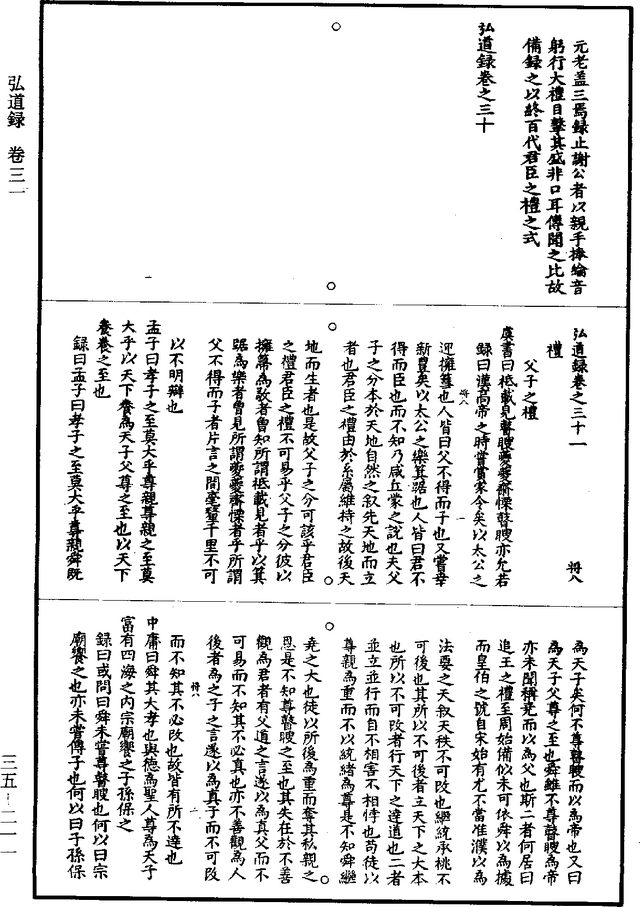 弘道録　卷三一
三五—二一一
元老盖三焉録止謝公者以親手捧綸音
躬行大禮目擊其盛非口耳傳聞之比故
備録之以終百代君臣之禮之式
弘道録卷之三十
弘道録卷之三十一　將八
禮
父子之禮
虞書曰祗載見瞽瞍夔夔齋慄瞽瞍亦允若
録曰漢高帝之時嘗賞家令矣以太公之
迎擁篲也人皆曰父不得而子也又嘗幸
新豐矣以太公之樂箕踞也人皆曰君不
得而臣也而不知乃咸丘蒙之説也夫父
子之分本於天地自然之叙先天地而立
者也君臣之禮由於系屬維持之故後天
地而生者也是故父子之分可該乎君臣
之禮君臣之禮不可易乎父子之分彼以
擁篲為敬者曾知所謂祗載見者乎以箕
踞為樂者曾見所謂夔夔齋慄者乎所謂
父不得而子者片言之間毫釐千里不可
以不明辯也
孟子曰孝子之至莫大乎尊親尊親之至莫
大乎以天下養為天子父尊之至也以天下
養養之至也
録曰孟子曰孝子之至莫大乎尊親舜既
為天子矣何不尊瞽瞍而以為帝也又曰
為天子父尊之至也舜雖不尊瞽瞍為帝
亦未聞稱堯而以為父也斯二者何居曰
追王之禮至周始備似未可依舜以為據
而皇伯之號自宋始有尤不當准濮以為
法要之天叙天秩不可改也繼統承祧不
可後也其所以不可後者立天下之大本
也所以不可改者行天下之達道也二者
並立並行而自不相害不相悖也苟徒以
尊親為重而不以統緒為尊是不知舜繼
堯之大也徒以所後為重而奪其私親之
恩是不知尊瞽瞍之至也其失在於不善
觀為君者有父道之言遂以為真父而不
可易而不知其不必真也亦不善觀為人
後者為之子之言遂以為真子而不可改
而不知其不必改也故皆有所不達也
中庸曰舜其大孝也與德為聖人尊為天子
富有四海之内宗廟饗之子孫保之
録曰或問曰舜未嘗尊瞽瞍也何以曰宗
廟饗之也亦未嘗傳子也何以曰子孫保